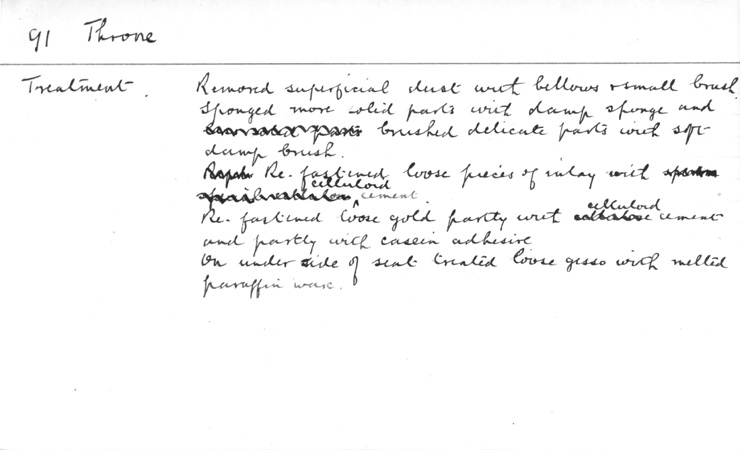 91 Throne
Treatment. Removed superficial dust with bellows & small brush.
Sponged more solid parts with damp sponge and
parts brushed delicate parts with soft
damp brush.
Re-fastened loose pieces of inlay with
celluloid cement.
Re-fastened loose gold partly with celluloid cement
and partly with casein adhesive
On under side of seat treated loose gesso with melted
paraffin wax.